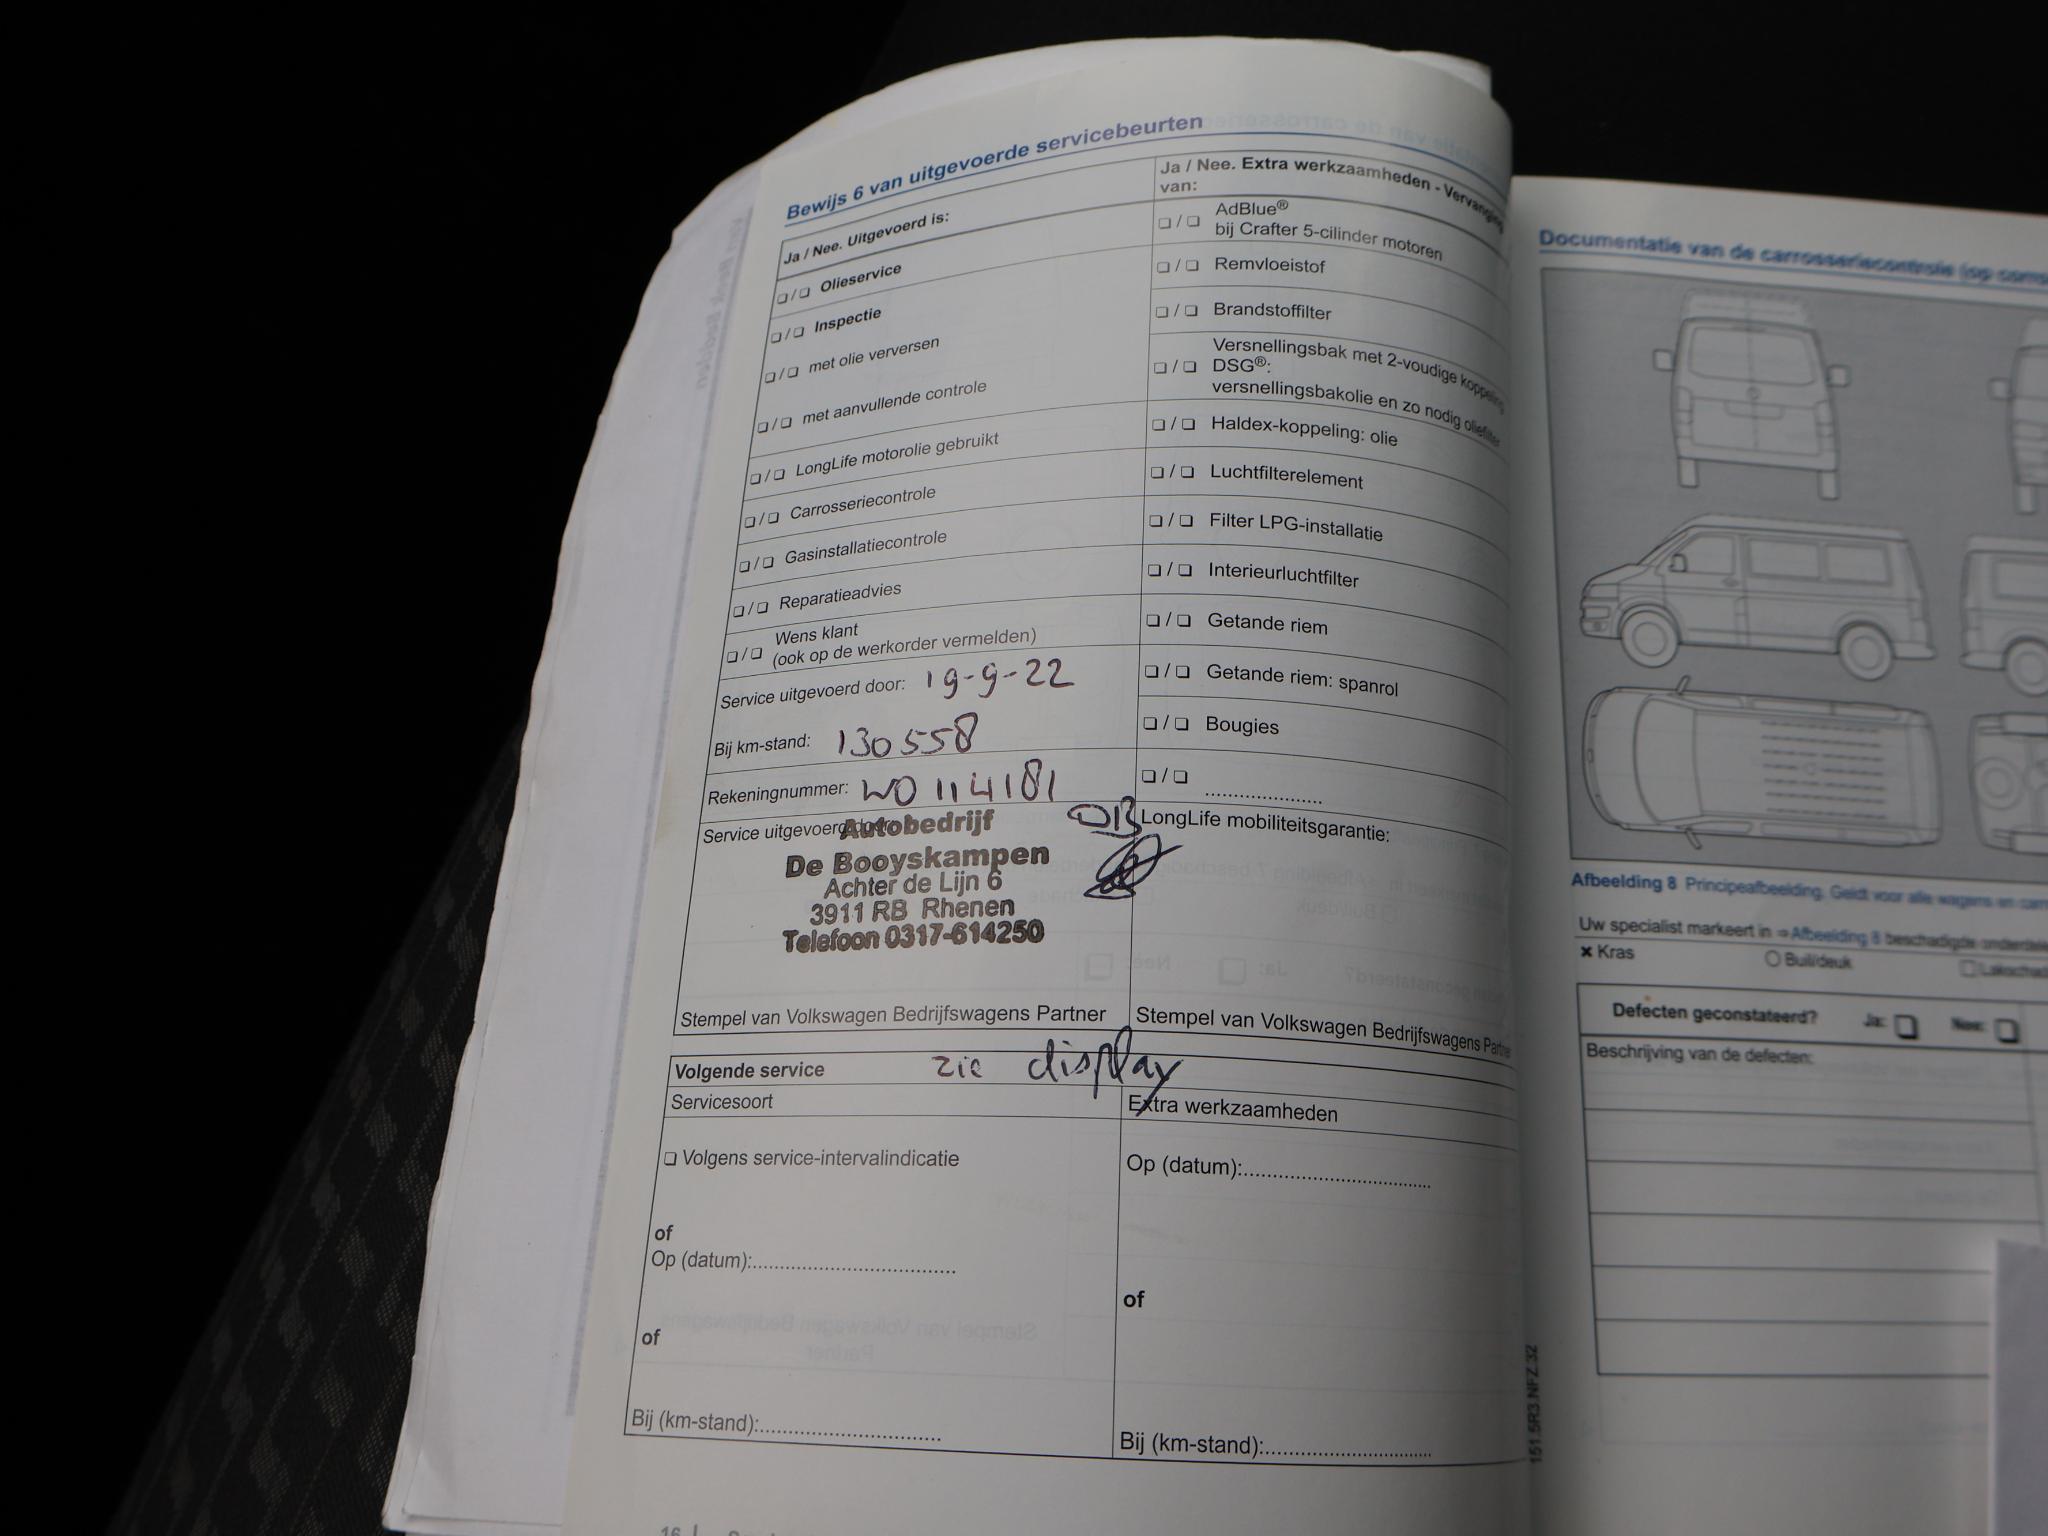 Bewijs 6 van uitgevoerde servicebeurten
Ja / Nee. Uitgevoerd is:
❏ / ❏ Olieservice
❏ / ❏ Inspectie
❏ / ❏ met olie verversen
❏ / ❏ met aanvullende controle
❏ / ❏ LongLife motorolie gebruikt
❏ / ❏ Carrosseriecontrole
❏ / ❏ Gasinstallatiecontrole
❏ / ❏ Reparatieadvies
❏ / ❏ Wens klant
(ook op de werkorder vermelden)
Service uitgevoerd door: 19-9-22
Bij km-stand: 130558
Rekeningnummer: WO 114181
Service uitgevoerd door:
Autobedrijf
De Booyskampen
Achter de Lijn 6
3911 RB Rhenen
Telefoon 0317-614250
Stempel van Volkswagen Bedrijfswagens Partner
Ja / Nee. Extra werkzaamheden - Vervanging
van:
❏ / ❏ AdBlue®
bij Crafter 5-cilinder motoren
❏ / ❏ Remvloeistof
❏ / ❏ Brandstoffilter
❏ / ❏ Versnellingsbak met 2-voudige koppeling
DSG®:
versnellingsbakolie en zo nodig oliefilter
❏ / ❏ Haldex-koppeling: olie
❏ / ❏ Luchtfilterelement
❏ / ❏ Filter LPG-installatie
❏ / ❏ Interieurluchtfilter
❏ / ❏ Getande riem
❏ / ❏ Getande riem: spanrol
❏ / ❏ Bougies
❏ / ❏ .....................
LongLife mobiliteitsgarantie:
Stempel van Volkswagen Bedrijfswagens Partner
Volgende service zie display
Servicesoort
❏ Volgens service-intervalindicatie
of
Op (datum):...................................
of
Bij (km-stand):...............................
Extra werkzaamheden
Op (datum):...................................
of
Bij (km-stand):...............................
16
151.5R3.NFZ.32
Documentatie van de carrosseriecontrole (op
Afbeelding 8 Principeafbeelding. Geldt voor alle wagens en
Uw specialist markeert in ⇒Afbeelding 8 beschadigde
× Kras ○ Buil/deuk
Defecten geconstateerd? Ja: ❏ Nee: ❏
Beschrijving van de defecten: